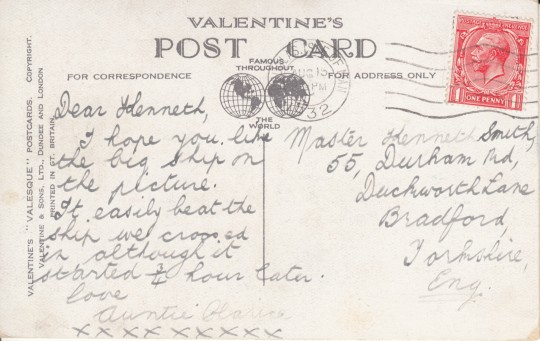 VALENTINE'S
POST CARD
FAMOUS
THROUGHOUT
THE
WORLD
FOR CORRESPONDENCE
FOR ADDRESS ONLY
32
POSTAGE
ONE PENNY
VALENTINE'S "VALESQUE" POSTCARDS. COPYRIGHT.
VALENTINE & SONS, LTD., DUNDEE AND LONDON
PRINTED IN GT. BRITAIN.
Dear Kenneth,
I hope you like
the big ship on
the picture.
It easily beat the
ship we crossed
in although it
started 3/4 hour later.
love
Auntie Clarice
x x x x x x x x x
Master Kenneth Smith,
55, Durham Rd,
Duckworth Lane
Bradford,
Yorkshire,
Eng.